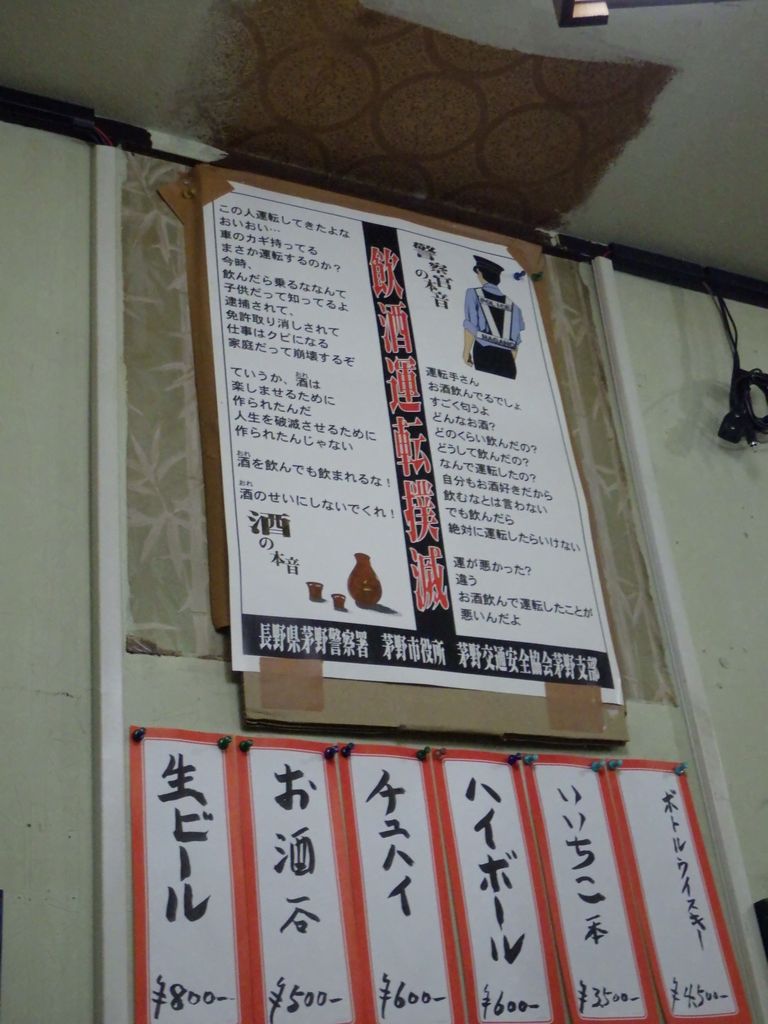 警察官
の本音
POLICE
NAGANO
運転手さん
お酒飲んでるでしょ
すごく匂うよ
どんなお酒?
どのくらい飲んだの?
どうして飲んだの?
なんで運転したの?
自分もお酒好きだから
飲むなとは言わない
でも飲んだら
絶対に運転したらいけない
運が悪かった?
違う
お酒飲んで運転したことが
悪いんだよ
飲酒運転撲滅
この人運転してきたよな
おいおい…
車のカギ持ってる
まさか運転するのか?
今時、
飲んだら乗るななんて
子供だって知ってるよ
逮捕されて、
免許取り消しされて
仕事はクビになる
家庭だって崩壊するぞ
ていうか、酒は
おれ
楽しませるために
作られたんだ
人生を破滅させるために
作られたんじゃない
おれ
酒を飲んでも飲まれるな!
おれ
酒のせいにしないでくれ!
酒
の本音
長野県茅野警察署 茅野市役所 茅野交通安全協会茅野支部
生ビール
¥800-
お酒
¥500-
チュハイ
¥600-
ハイボール
¥600-
いいちこ 一本
¥3,500-
ボトルウイスキー
¥4,500-